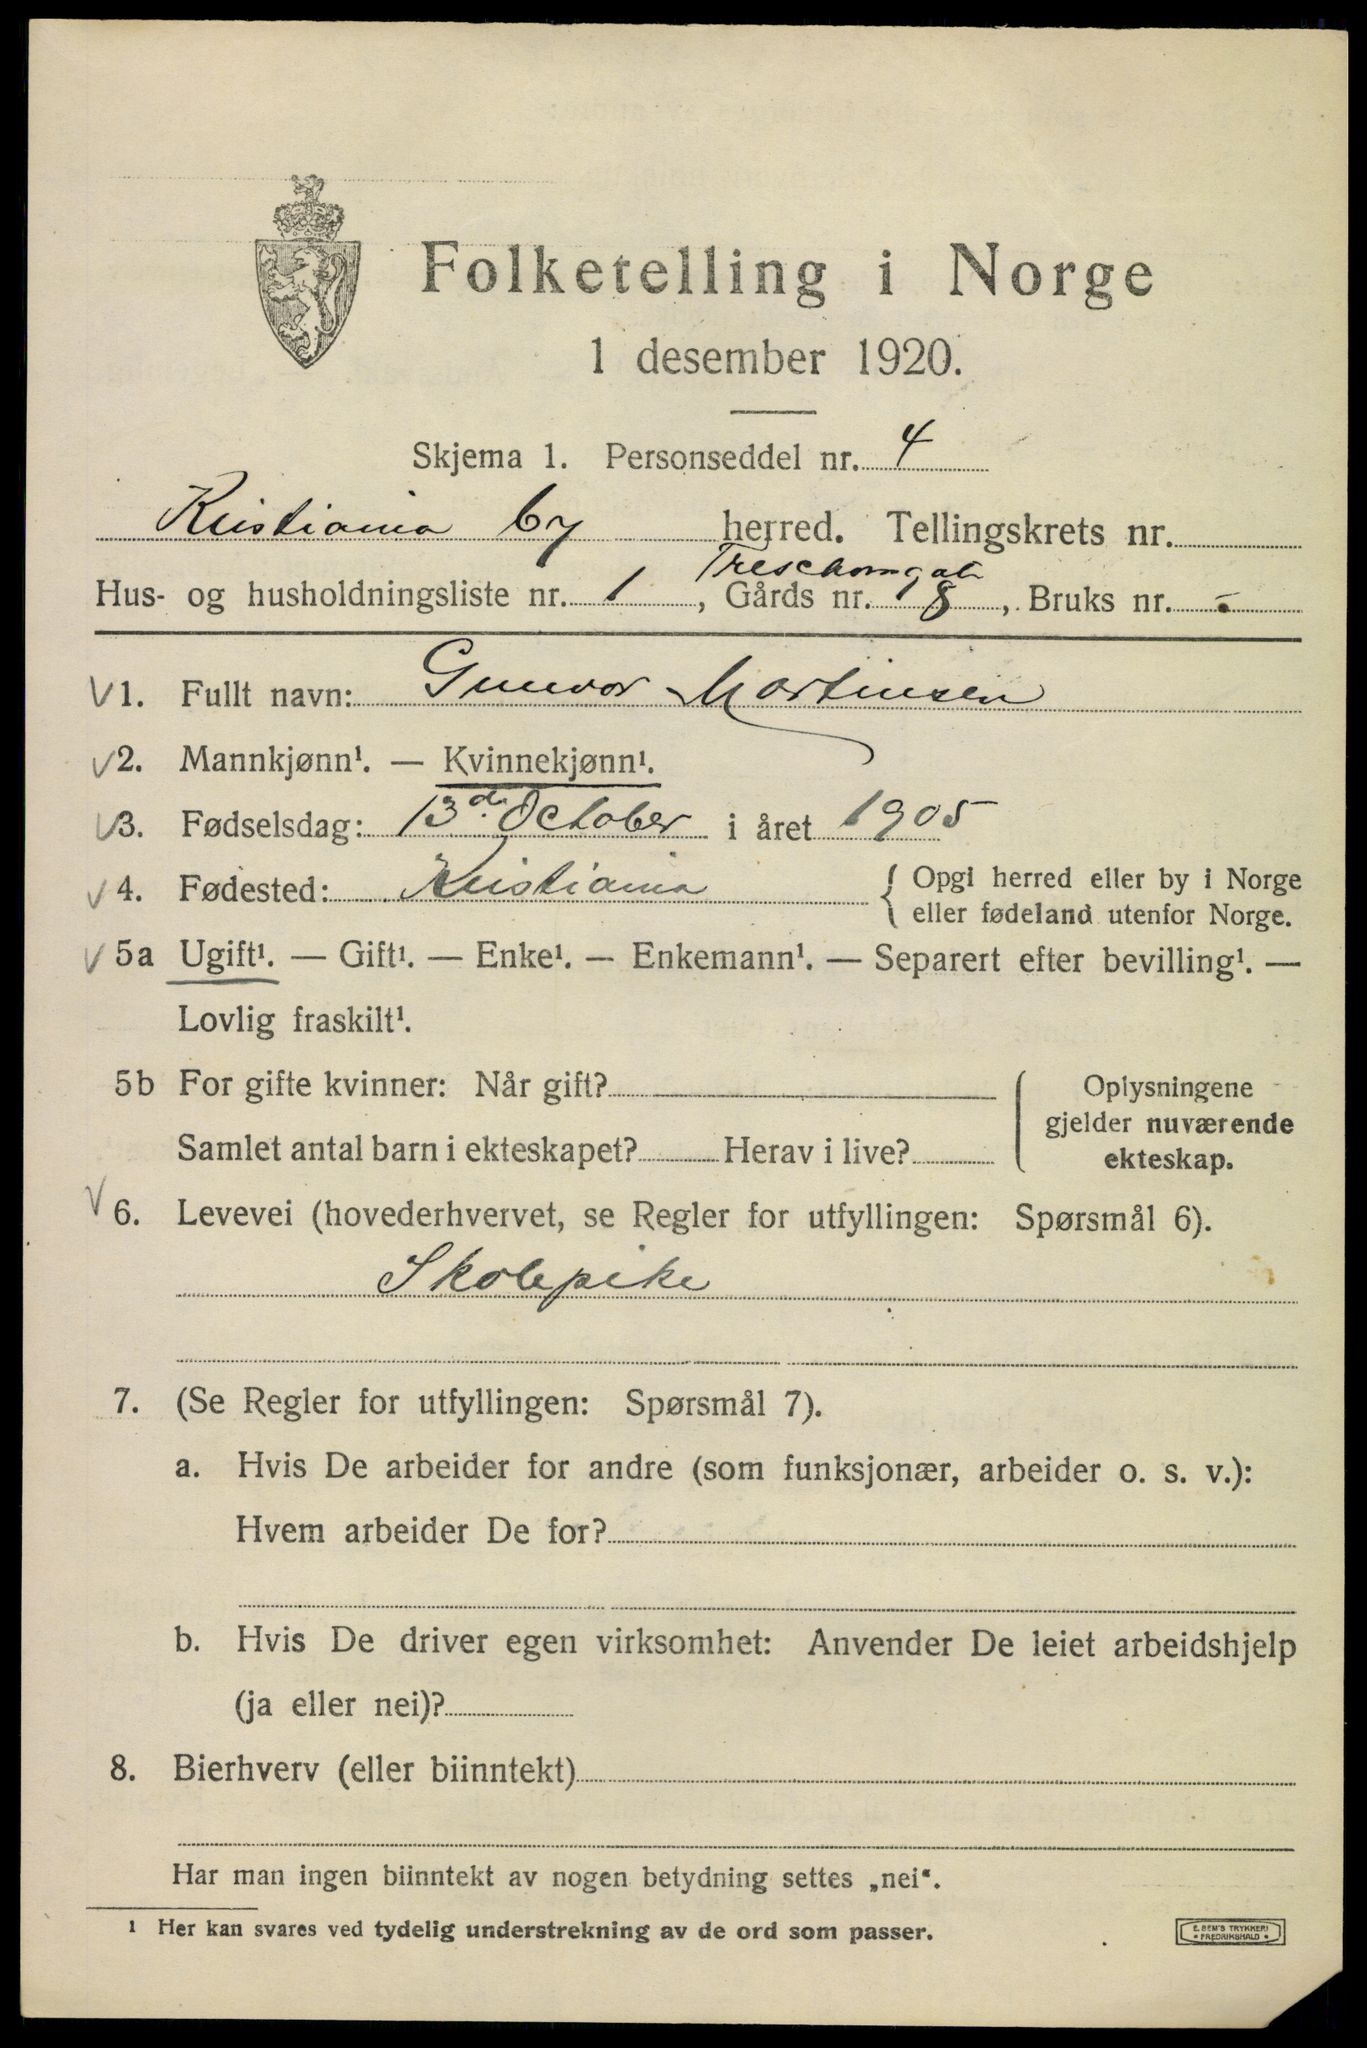 Folketelling i Norge
1 desember 1920.
Skjema 1. Personseddel nr. 4
Kristiania by herred. Tellingskrets nr.
Hus- og husholdningsliste nr. 1, Gårds nr. 18, Bruks nr. -
1. Fullt navn: Gunvor Martinsen
2. Mannkjønn¹. — Kvinnekjønn¹.
3. Fødselsdag: 13de October i året 1905
4. Fødested: Kristiania { Opgi herred eller by i Norge
eller fødeland utenfor Norge.
5a Ugift¹. — Gift¹. — Enke¹. — Enkemann¹. — Separert efter bevilling¹. —
Lovlig fraskilt¹.
5b For gifte kvinner: Når gift? Oplysningene
gjelder nuværende
Samlet antal barn i ekteskapet? Herav i live? ekteskap.
6. Levevei (hovederhvervet, se Regler for utfyllingen: Spørsmål 6).
Skolepike
7. (Se Regler for utfyllingen: Spørsmål 7).
a. Hvis De arbeider for andre (som funksjonær, arbeider o. s. v.):
Hvem arbeider De for?
b. Hvis De driver egen virksomhet: Anvender De leiet arbeidshjelp
(ja eller nei)?
8. Bierhverv (eller biinntekt)
Har man ingen biinntekt av nogen betydning settes „nei“.
1 Her kan svares ved tydelig understrekning av de ord som passer.
E. SEM'S TRYKKERI
• FREDRIKSHALD •